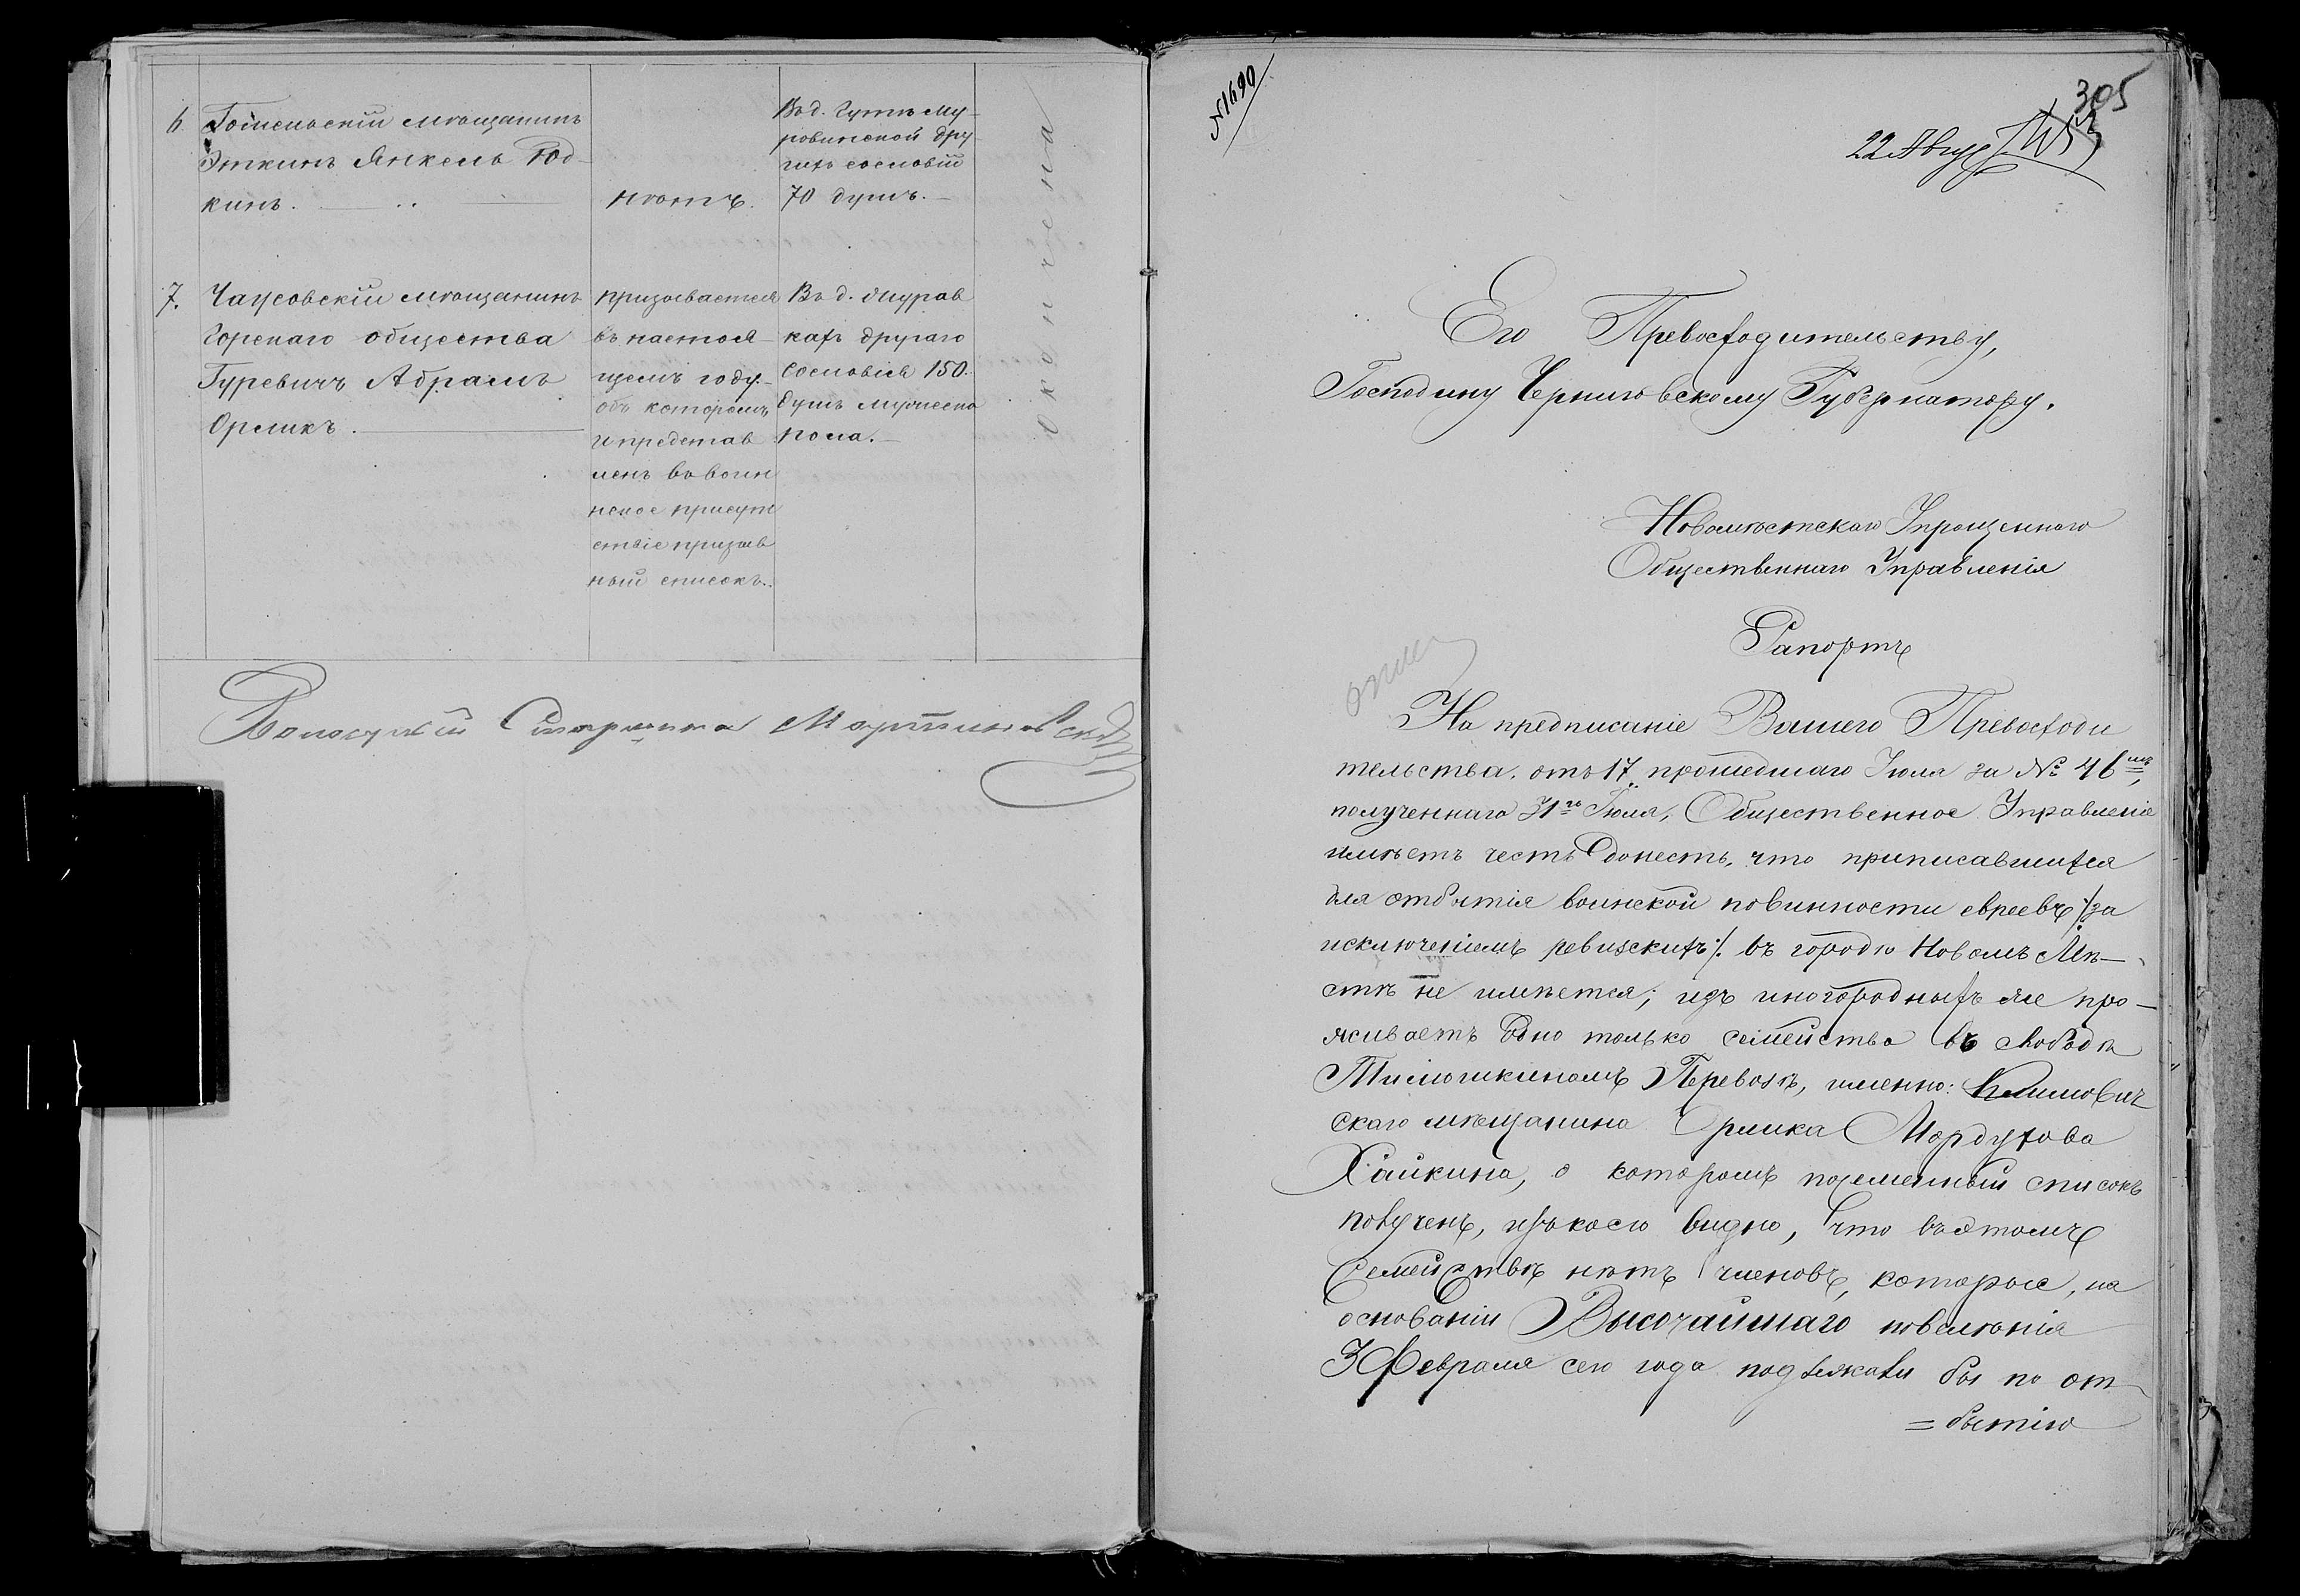 6. Гомельскій мѣщанинъ
Эткинъ Янкель Юд-
кинъ.
нѣтъ.
Въ д. Гутѣ Му-
ровинской дру-
гихъ сословій
70 душъ.
7. Чаусовскій мѣщанинъ
Горскаго общества
Гуревичъ Абрамъ
Орликъ.
призывается
въ настоя-
щемъ году.-
объ которомъ
и представ
ленъ въ воин
нское присут
ствіе призыв
ный списокъ..
Въ д. Мурав
кахъ другаго
сословія 150.
душъ мужеска
пола.
окончена
Волостный Старшина
№1690
305
22 Авгус
Его Превосходительству,
Господину Черниговскому Губернатору.
Новомѣстскаго Упрощеннаго
Общественнаго Управленія
Рапортъ
На предписаніе Вашего Превосходи
тельства, отъ 17 прошедшаго Іюля за № 46
полученнаго 31го Іюля, Общественное Управленіе
имѣетъ честь донесть, что приписавшихся
для отбытія воинской повинности евреевъ /:за
исключеніемъ ревизскихъ:/ въ городѣ Новомъ Мѣ-
стѣ не имѣется; изъ иногородныхъ же про-
живаетъ одно только семейство въ слободѣ
Перевозѣ, именно: Климович
скаго мѣщанина Орлика Мордухова
Хайкина, о которомъ посемейный списокъ
полученъ, изъ коего видно, что въ этомъ
Семействѣ нѣтъ членовъ, которые, на
основаніи Высочайшаго повелѣнія
3 Февраля сего года подлежали бы по от
=бытію